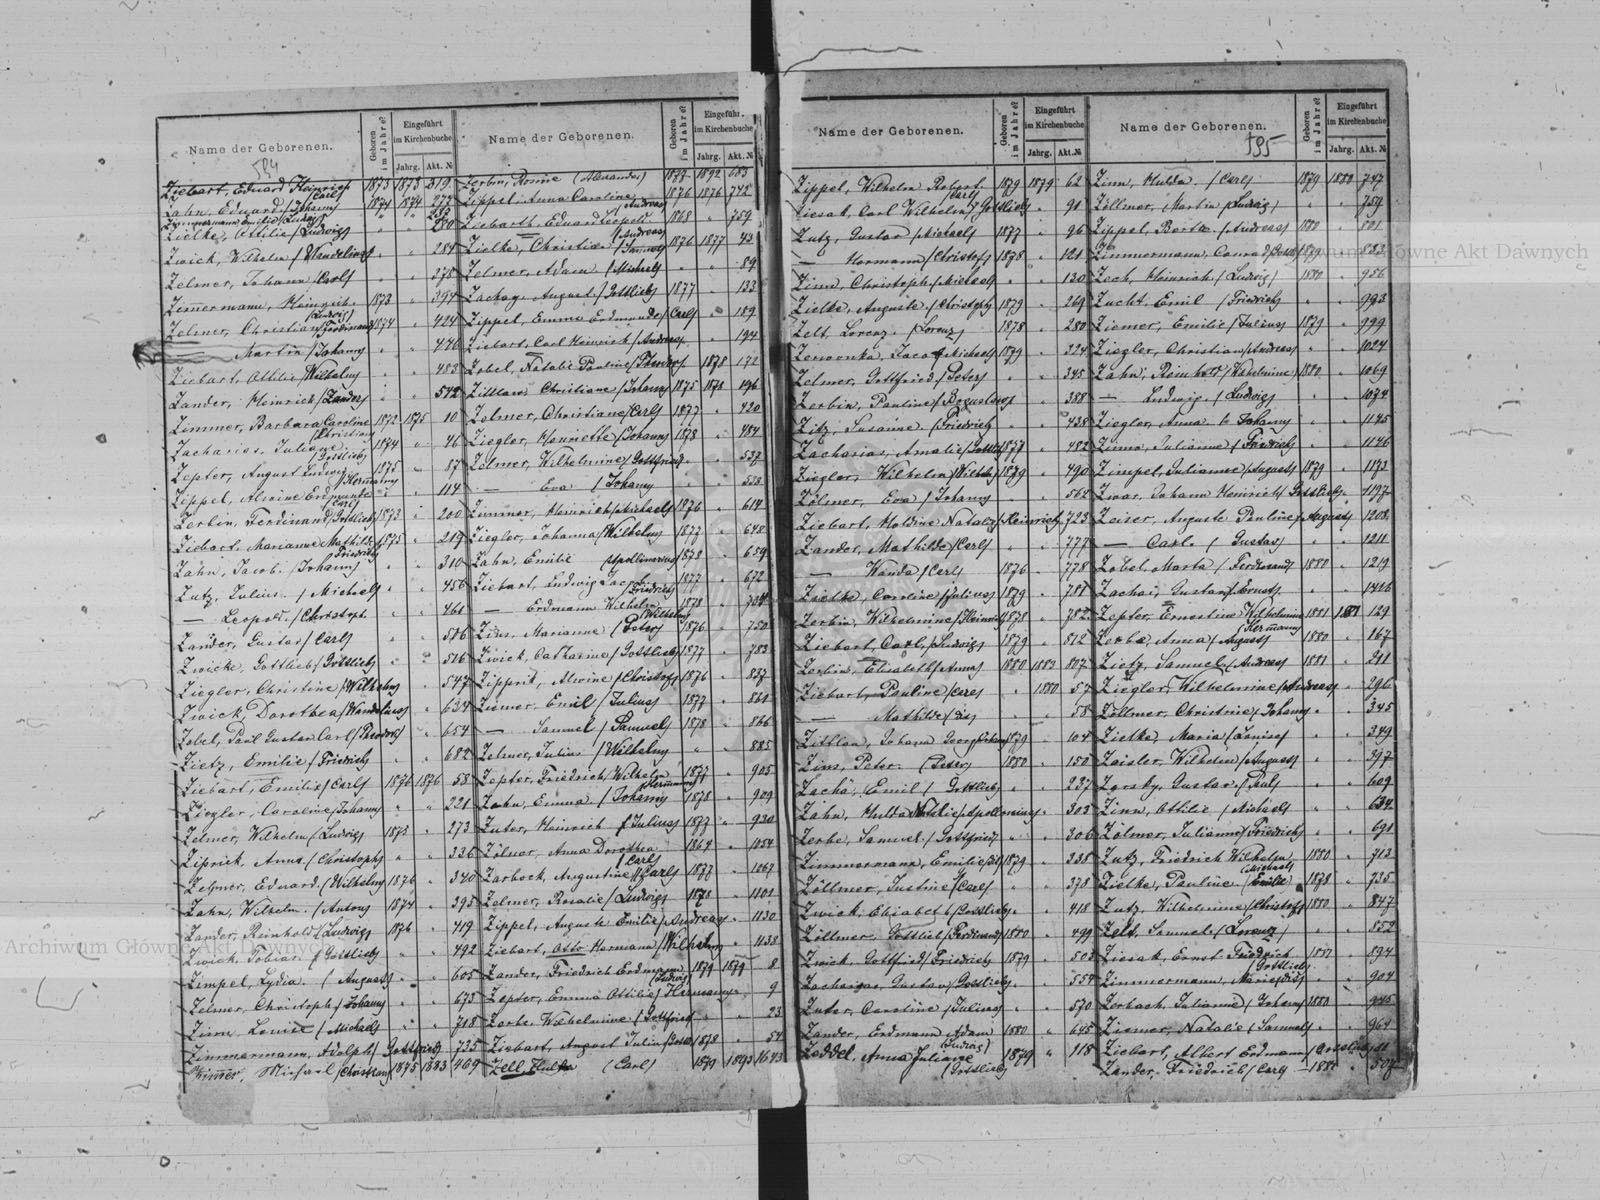 Name der Geborenen.
Geboren im Jahre?
Eingeführt im Kirchenbuche
Jahrg.
Akt. №
594
Ziebart, Eduard Heinrich (Carl) 1873 1873 319
Zahn, Eduard (Johann) 1874 1874 277
Zimmermann Emilie (Ludwig)
Zielke, Ottilie (Ludwig) 280
Zwick, Wilhelm (Wandelin) 284
Zelmer, Johann (Carl) 378
Zimmermann, Heinrich (Ludwig) 1873 394
Zelmer, Christian (Ferdinand) 1874 424
Martin (Johann) 476
Ziebart, Ottilie (Wilhelm) 483
Zander, Heinrich (Zander) 572
Zimmer, Barbara Caroline (Christian) 1872 1875 10
Zacharies, Juliane (Gottlieb) 1874 46
Zepter, August Ludwig (Hermann) 1875 87
Zippel, Alwine Erdmunte (Carl) 114
Zerlin, Ferdinand (Gottlieb) 1873 200
Ziebart, Marianne Mathilde (Friedrich) 1875 219
Zahn, Jacob (Johann) 310
Zutz, Julius (Michael) 456
— Leopold (Christoph) 461
Zander, Gustav (Carl) 506
Zwicke, Gottlieb (Gottlieb) 516
Ziegler, Christine (Wilhelm) 547
Zwick, Dorothea (Wandelin) 634
Zobel, Paul Gustav Carl (Theodor) 654
Zietz, Emilie (Friedrich) 682
Ziebart, Emilie (Carl) 1876 1876 58
Ziegler, Caroline (Johann) 221
Zelmer, Wilhelm (Ludwig) 1875 273
Ziprick, Anna (Christoph) 336
Zelmer, Eduard (Wilhelm) 1876 340
Zahn, Wilhelm (Anton) 1874 395
Zander, Reinhold (Ludwig) 1876 419
Zwick, Tobias (Gottlieb) 492
Zimpel, Lydia (August) 605
Zelmer, Christoph (Johann) 673
Zirm, Louise (Michael) 718
Zimmermann, Adolph (Gottfried) 735
Zimmer, Michael (Christian) 1875 1883 469
Name der Geborenen.
Geboren im Jahre?
Eingeführt im Kirchenbuche
Jahrg.
Akt. №
Zerbin, Ronne (Alexander) 1877 1892 683
Zippel, Anna Caroline (Andreas) 1876 1876 742
Ziebarth, Eduard Leopold (Andreas) 1868 759
Zielke, Christian (Samuel) 1876 1877 43
Zelmer, Adam (Michael) 89
Zachay, August (Gottlieb) 1877 133
Zippel, Emma Erdmunde (Carl) 189
Ziebart, Carl Heinrich (Andreas) 194
Zobel, Natalie Pauline (Theodor) 1878 172
Zittlau, Christiane (Johann) 1875 1878 196
Zelmer, Christiane (Carl) 1877 420
Ziegler, Henriette (Johann) 1878 484
Zelmer, Wilhelmine (Gottfried) 537
— Eva (Johann) 538
Zimmer, Heinrich (Michael) 1876 614
Ziegler, Johanna (Wilhelm) 1877 648
Zahn, Emilie (Apollinarius) 1878 659
Ziebart, Ludwig Jacob (Friedrich) 1877 672
— Erdmann Wilhelm (Wilhelm) 1878
Zius, Marianne (Peter) 1876 750
Zwick, Catharine (Gottlieb) 1877 783
Zipprit, Alwine (Christof) 1876 837
Ziemer, Emil (Julius) 1877 861
— Samuel (Samuel) 1878 866
Zelmer, Julius (Wilhelm) 885
Zepter, Friedrich Wilhelm (Hermann) 1877 905
Zahn, Emma (Johann) 1878 909
Zuter, Heinrich (Julius) 1877 930
Zölner, Anna Dorothea (Carl) 1869 1054
Zarbock, Augustine (Carl) 1877 1067
Zelmer, Rosalie (Ludwig) 1878 1101
Zippel, Auguste Emilie (Andreas) 1130
Ziebart, Otto Hermann (Wilhelm) 1138
Zander, Friedrich Erdmann (Ludwig) 1879 1879 8
Zepter, Emma Ottilie (Hermann) 9
Zerbe, Wilhelmine (Gottfried) 23
Ziebart, August Julius 1878 54
Zell Hulda (Carl) 1879 1893 1643
Name der Geborenen.
Geboren im Jahre?
Eingeführt im Kirchenbuche
Jahrg.
Akt. №
Zippel, Wilhelm Robert (Carl) 1879 1879 62
Ziesak, Carl Wilhelm (Gottlieb) 91
Zutz, Gustav (Michael) 1877 96
— Hermann (Christof) 1878 121
Zinn, Christoph (Michael) 130
Zielke, Auguste (Christoph) 1879 269
Zelt, Lorenz (Lorenz) 1878 280
Zerwonka, Jacob (Michael) 1879 324
Zelmer, Gottfried (Peter) 345
Zerbin, Pauline (Boguslaw) 388
Zitz, Susanne (Friedrich) 438
Zacharias, Amalie (Gottlieb) 1877 482
Ziegler, Wilhelm (Wilhelm) 1879 490
Zölmer, Eva (Johann) 562
Ziebart, Holdine Natalie (Heinrich) 723
Zander, Mathilde (Carl) 777
— Wanda (Carl) 1876 778
Zielke, Caroline (Julius) 1879 781
Zerbin, Wilhelmine (Heinrich) 1878 782
Ziebart, Carl (Ludwig) 1879 812
Zerbin, Elisabeth (Anna) 1880 1883 807
Ziebart, Pauline (Carl) 1880 57
— Mathilde (dis) 58
Zithlau, Johann Georg (Johann) 1879 104
Zins, Peter (Peter) 1880 150
Zachä, Emil (Gottlieb) 237
Zahn, Hulda Natalie (Apollinarius) 303
Zerbe, Samuel (Gottfried) 306
Zimmermann, Emilie 1879 338
Zöllmer, Justine (Carl) 378
Zwick, Elisabeth (Gottlieb) 418
Zöllmer, Gottlieb (Ferdinand) 1880 499
Zwick, Gottfried (Friedrich) 1879 503
Zachaigas, Gustav (Gottlieb) 554
Zuter, Caroline (Julius) 570
Zander, Erdmann Adam (Ludwig) 1880 645
Zeddel, Anna Juliane (Gottlieb) 1879 118
Name der Geborenen.
Geboren im Jahre?
Eingeführt im Kirchenbuche
Jahrg.
Akt. №
595
Zinn, Hulda (Carl) 1879 1880 747
Zöllmer, Martin (Ludwig) 759
Zippel, Bertha (Andreas) 1880 801
Zimmermann, Conrad 1879 853
Zech, Heinrich (Ludwig) 1880 956
Zucht, Emil (Friedrich) 993
Ziemer, Emilie (Julius) 1879 999
Ziegler, Christian (Andreas) 1024
Zahn, Reinhold (Wilhelmine) 1880 1069
— Ludwig (Ludwig) 1094
Ziegler, Anna (Johann) 1145
Zinn, Julianne (Friedrich) 1146
Zimpel, Julianne (August) 1879 1173
Zwar, Johann Heinrich (Gottlieb) 1197
Zeiser, Auguste Pauline (August) 1208
— Carl (Gustav) 1211
Zobel, Marta (Ferdinand) 1880 1219
Zachai, Gustav (Ernst) 1406
Zepter, Ernestine Wilhelmine (Hermann) 1881 1881 129
Zerbe, Anna (August) 1880 167
Zietz, Samuel (Andreas) 1881 241
Ziegler, Wilhelmine (Andreas) 296
Zöllmer, Christine (Johann) 345
Zielke, Maria (Louise) 349
Zaisler, Wilhelm (August) 397
Zgorsky, Gustav (Paul) 609
Zinn, Ottilie (Michael) 634
Zölmer, Julianne (Friedrich) 691
Zutz, Friedrich Wilhelm (Michael) 1880 713
Zielke, Pauline (Emilie) 1878 735
Zutz, Wilhelmine (Christof) 1880 847
Zelt, Samuel (Lorenz) 852
Ziesak, Ernst Friedrich (Gottlieb) 1881 894
Zimmermann, Marie (dis) 904
Zerbach, Julianne (Johann) 1880 945
Ziemer, Natalie (Samuel) 964
Ziebart, Albert Erdmann
Zander, Friedrich (Carl) 1881 507
Archiwum Główne Akt Dawnych
Archiwum Główne Akt Dawnych